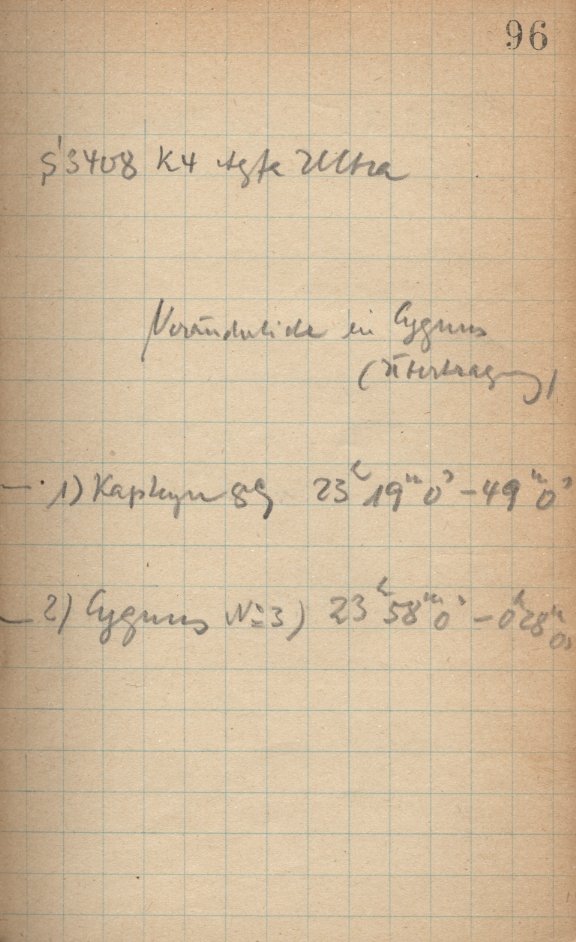 96
S 3408 K4 Agfa Ultra
Veränderliche in Cygnus
(Übertragung)
— 1) Kapteyn 89 23ʰ 19ᵐ 0ˢ – 49ᵐ 0ˢ
— 2) Cygnus No 3) 23ʰ 58ᵐ 0ˢ – 0ʰ 28ᵐ 0s